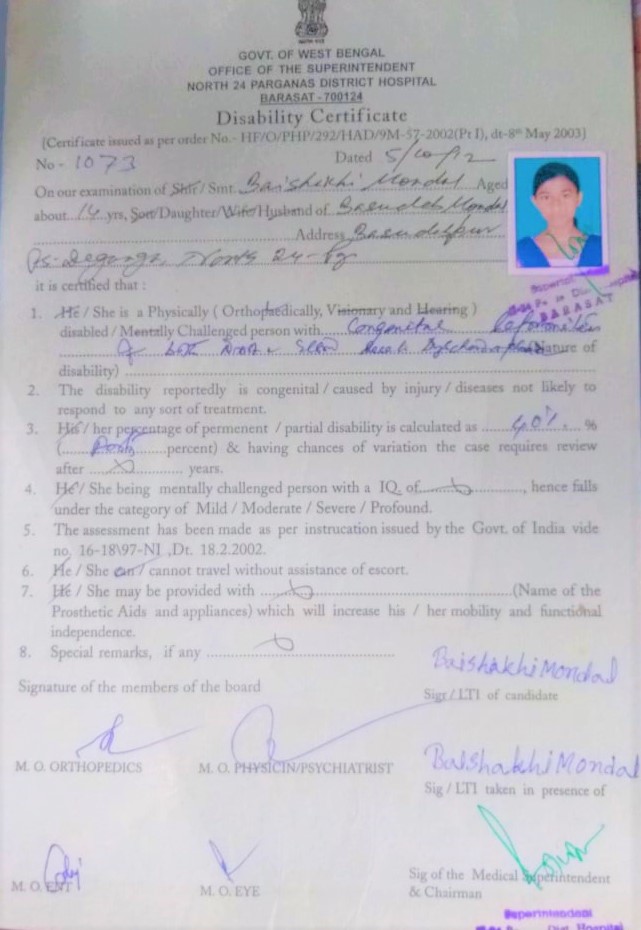 GOVT. OF WEST BENGAL
OFFICE OF THE SUPERINTENDENT
NORTH 24 PARGANAS DISTRICT HOSPITAL
BARASAT - 700124
Disability Certificate
[Certificate issued as per order No.- HF/O/PHP/292/HAD/9M-57-2002(Pt I), dt-8th May 2003]
No - 1073 Dated 5/10/12
On our examination of Shir / Smt. Baishakhi Mondal Aged
about 14 yrs, Son/Daughter/Wife/Husband of Basudeb Mondal
Address Basudebpur
Ps. Deganga, North 24-Pg
it is certified that :
1. He / She is a Physically ( Orthopaedically, Visionary and Hearing )
disabled / Mentally Challenged person with Congenital
of both (Nature of
disability)
2. The disability reportedly is congenital / caused by injury / diseases not likely to
respond to any sort of treatment.
3. His / her percentage of permenent / partial disability is calculated as 40% %
( percent) & having chances of variation the case requires review
after years.
4. He / She being mentally challenged person with a IQ. of , hence falls
under the category of Mild / Moderate / Severe / Profound.
5. The assessment has been made as per instrucation issued by the Govt. of India vide
no. 16-18\97-NI ,Dt. 18.2.2002.
6. He / She can / cannot travel without assistance of escort.
7. He / She may be provided with (Name of the
Prosthetic Aids and appliances) which will increase his / her mobility and functional
independence.
8. Special remarks, if any
Baishakhi Mondal
Signature of the members of the board
Sigr / LTI of candidate
Baishakhi Mondal
M. O. ORTHOPEDICS M. O. PHYSICIN/PSYCHIATRIST
Sig / LTI taken in presence of
M. O. ENT M. O. EYE
Sig of the Medical Superintendent
& Chairman
Superintendent
Dist. Hospital
BARASAT